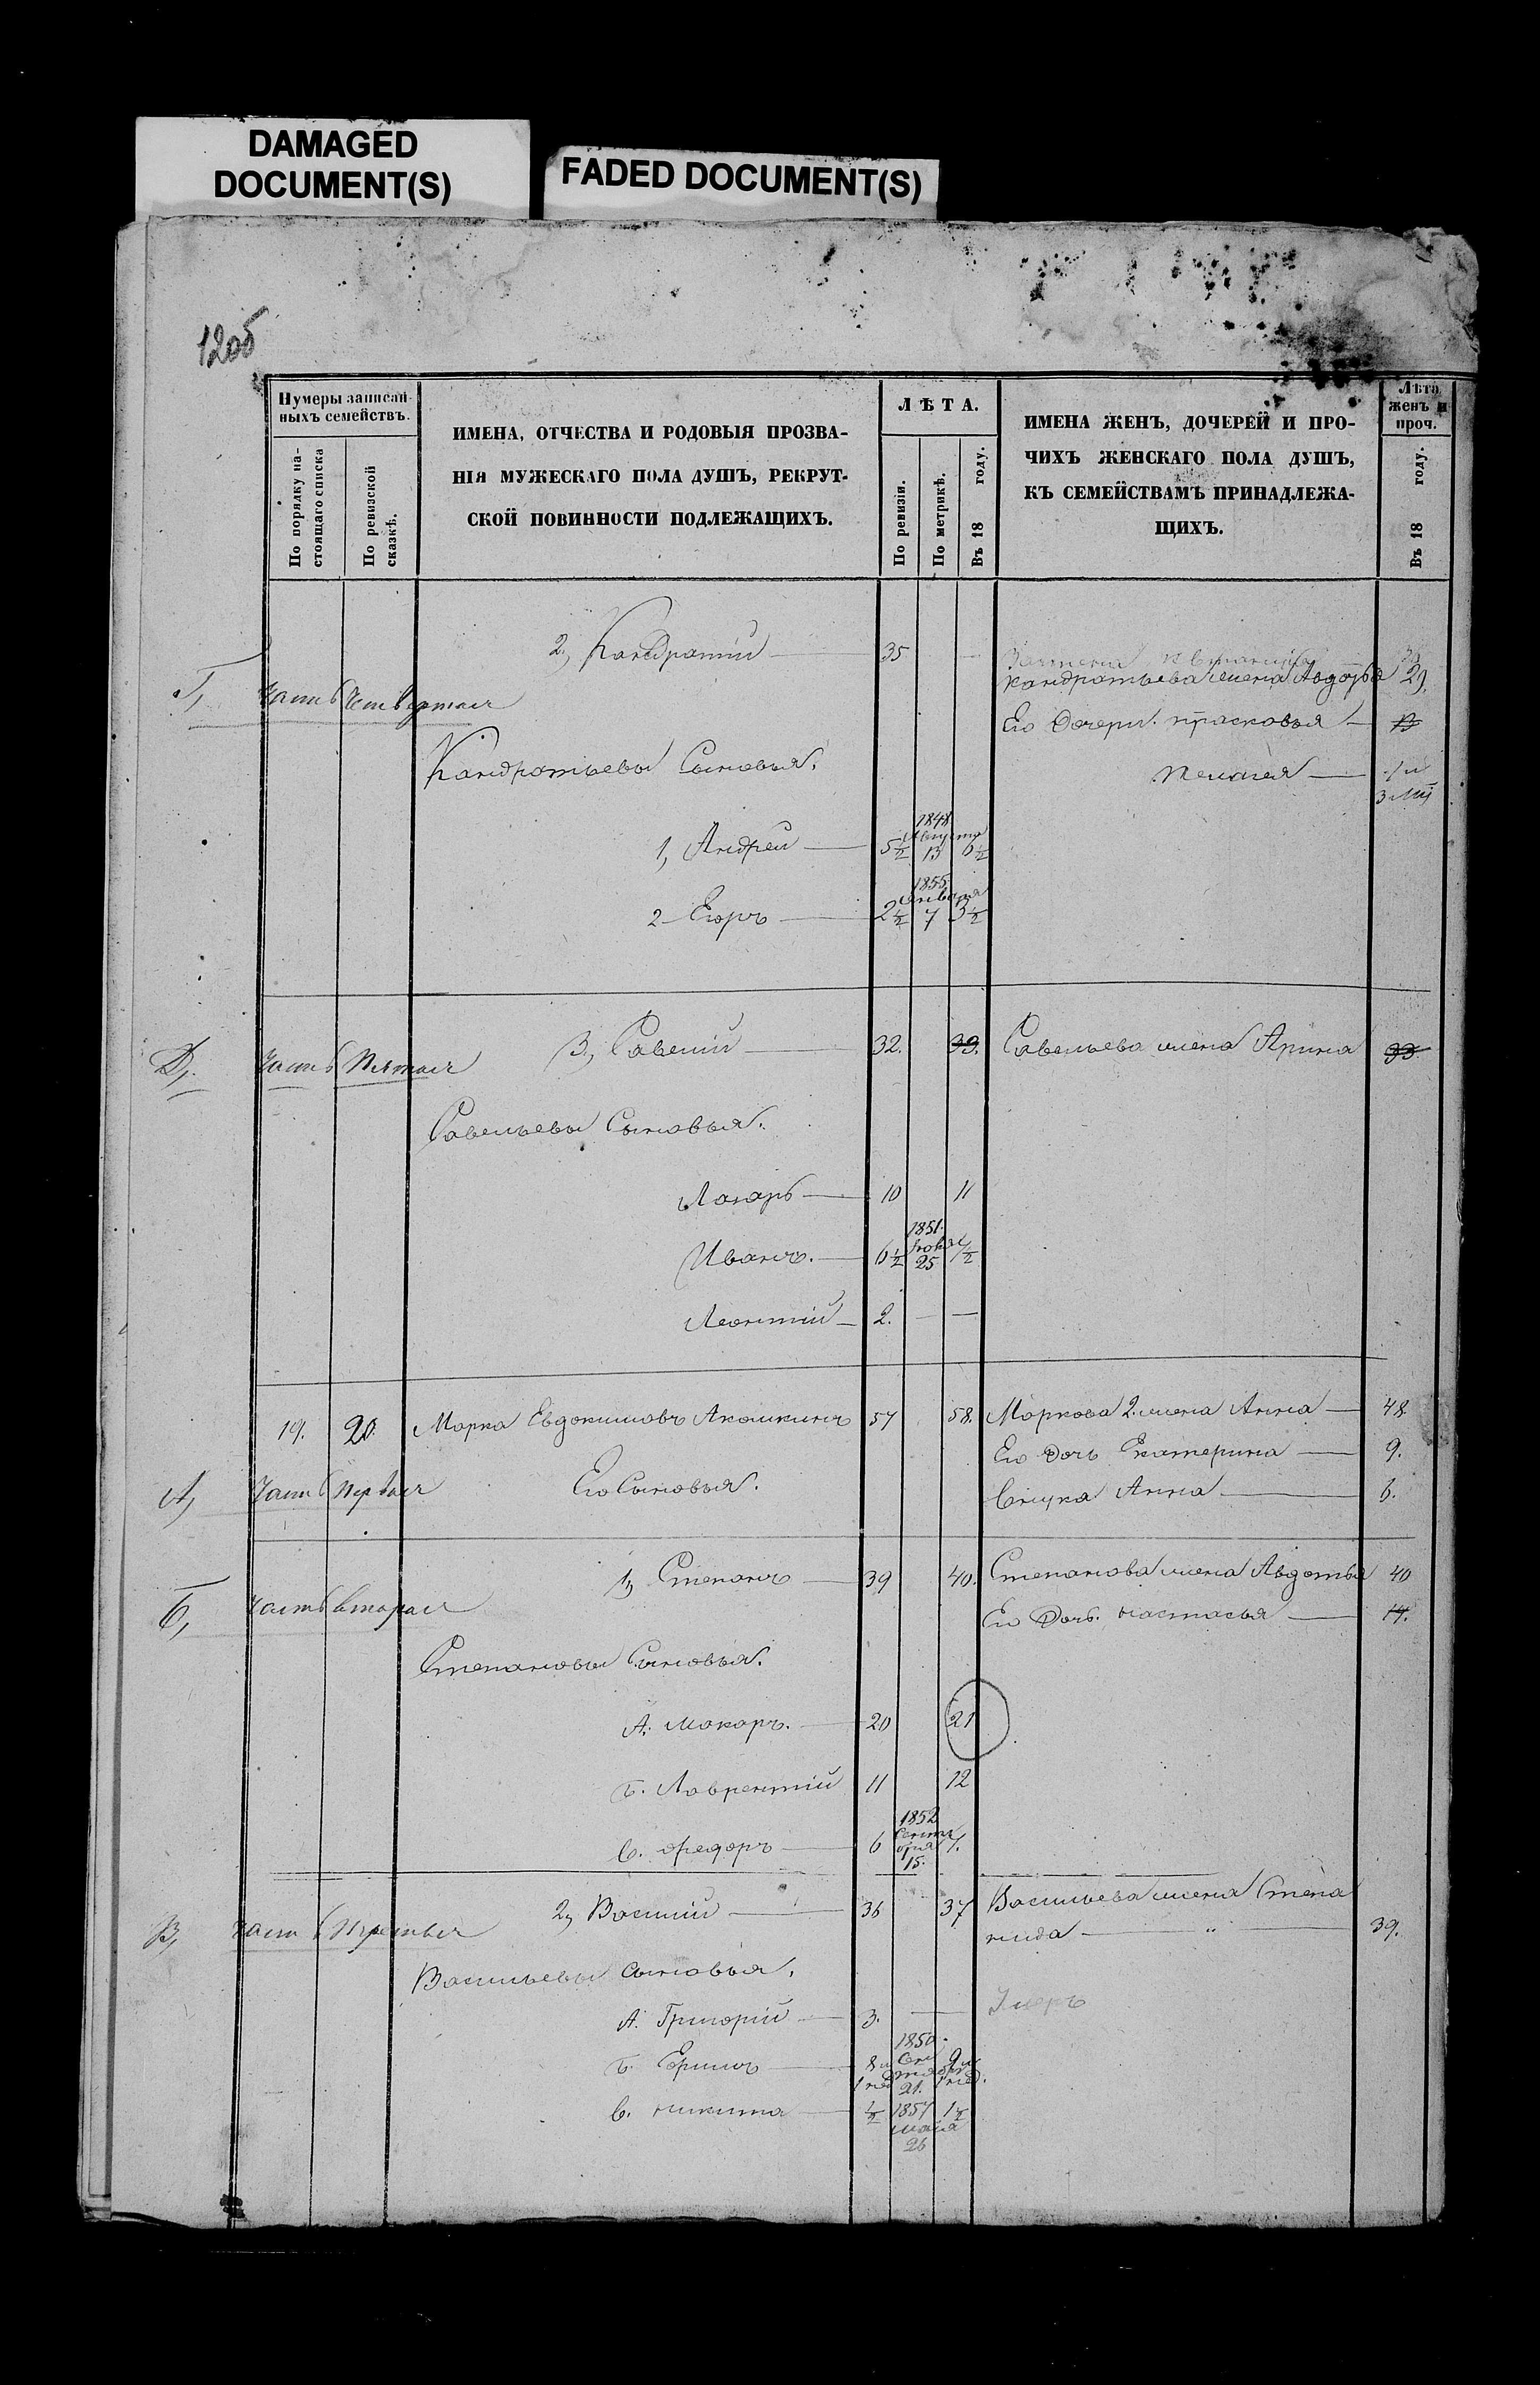 DAMAGED
DOCUMENT(S)
FADED DOCUMENT(S)
12об
Нумеры записан-
ныхъ семействъ.
По порядку на-
стоящаго списка
По ревизской
сказкѣ.
ИМЕНА, ОТЧЕСТВА И РОДОВЫЯ ПРОЗВА-
НІЯ МУЖЕСКАГО ПОЛА ДУШЪ, РЕКРУТ-
СКОЙ ПОВИННОСТИ ПОДЛЕЖАЩИХЪ.
ЛѢТА.
По ревизіи.
По метрикѣ.
Въ 18 году.
ИМЕНА ЖЕНЪ, ДОЧЕРЕЙ И ПРО-
ЧИХЪ ЖЕНСКАГО ПОЛА ДУШЪ,
КЪ СЕМЕЙСТВАМЪ ПРИНАДЛЕЖА-
ЩИХЪ.
Лѣта
женъ и
проч.
Въ 18 году.
2, Кандратій — 35 —
Г, Часть Четвертая
Кандратьева жена Авдотья 29.
Его Дочери. прасковья — 13
Кандратьевы Сыновья.
пелагея —
1, Андрей — 5½ 1848 Августа 13 6½
2 Егоръ — 2½ 1855 Января 7 3½
Д, Часть Пятая
3, Савелій — 32. 33. Савельева жена Арина 33
Савельевы Сыновья.
Лазарь — 10 11
Иванъ. — 6½ 1851. 25 7½
Леонтій — 2. — —
19. 20. Марка Евдокимовъ Акашкинъ 57 58. Маркова 2. жена Анна — 48
Его дочь Екатерина — 9.
А, Часть Первая
Его Сыновья.
Внука Анна — 6.
1, Степанъ — 39 40. Степанова жена Авдотья 40
Б, Часть вторая
Его Дочь. настасья — 14.
Степановы Сыновья.
А. Макаръ. — 20 21
Б. Лаврентій 11 12
В. Федоръ — 6 1852 Сентября 15. 7.
2, Василій — 36 37 Васильева жена Степа
нида — " — 39.
В, Часть Третья
Васильевы сыновья.
А. Григорій — 3. — Умеръ
Б. Ефимъ — 8 1850. 21. 9
В. Никита — ½ 1857 Мая 26 1½